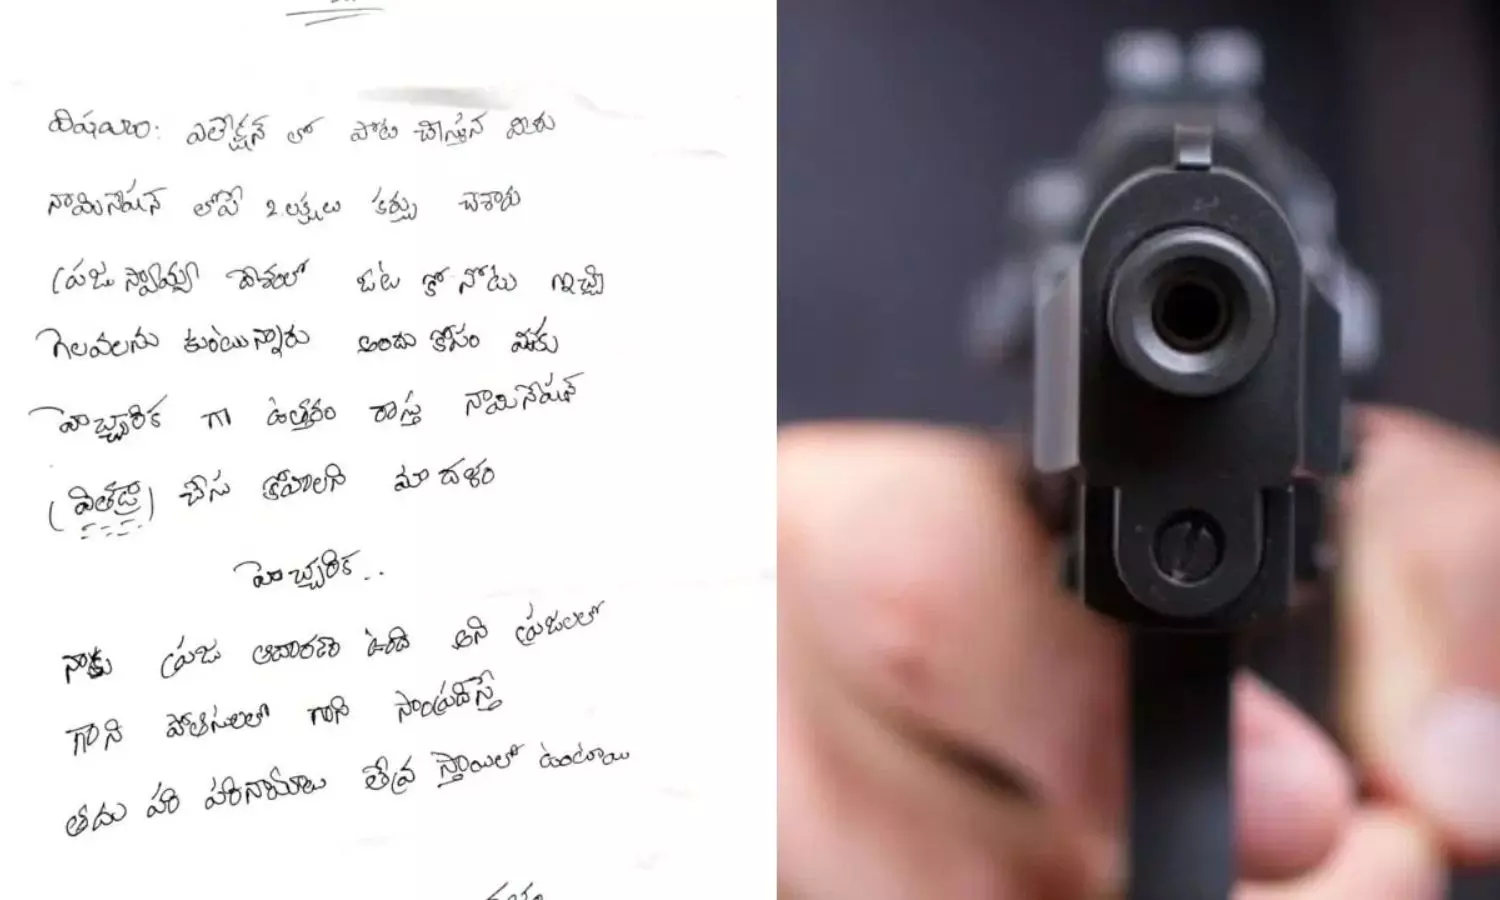 విషయం: ఎలేక్షన్ లో పోటి చేస్తున మీరు
నామినేషన్ లోపే 2 లక్షలు కర్చు చేశారు
ప్రజా స్వామ్య దేశంలో ఓటు కో నోటు ఇచ్చి
గెలవలను కుంటున్నారు అందు కోసం మీకు
హెచ్చరిక గా ఉత్తరం రాస్త నామినేషన్
(వితడ్రా) చేసు కోవాలని మా దళం
హెచ్చరిక..
నాకు ప్రజా ఆదారణ ఉంది అని ప్రజలలో
గాని పోలీసులలో గాని సంప్రదిస్తే
తీవ్ర స్తాయిలో ఉంటాయి